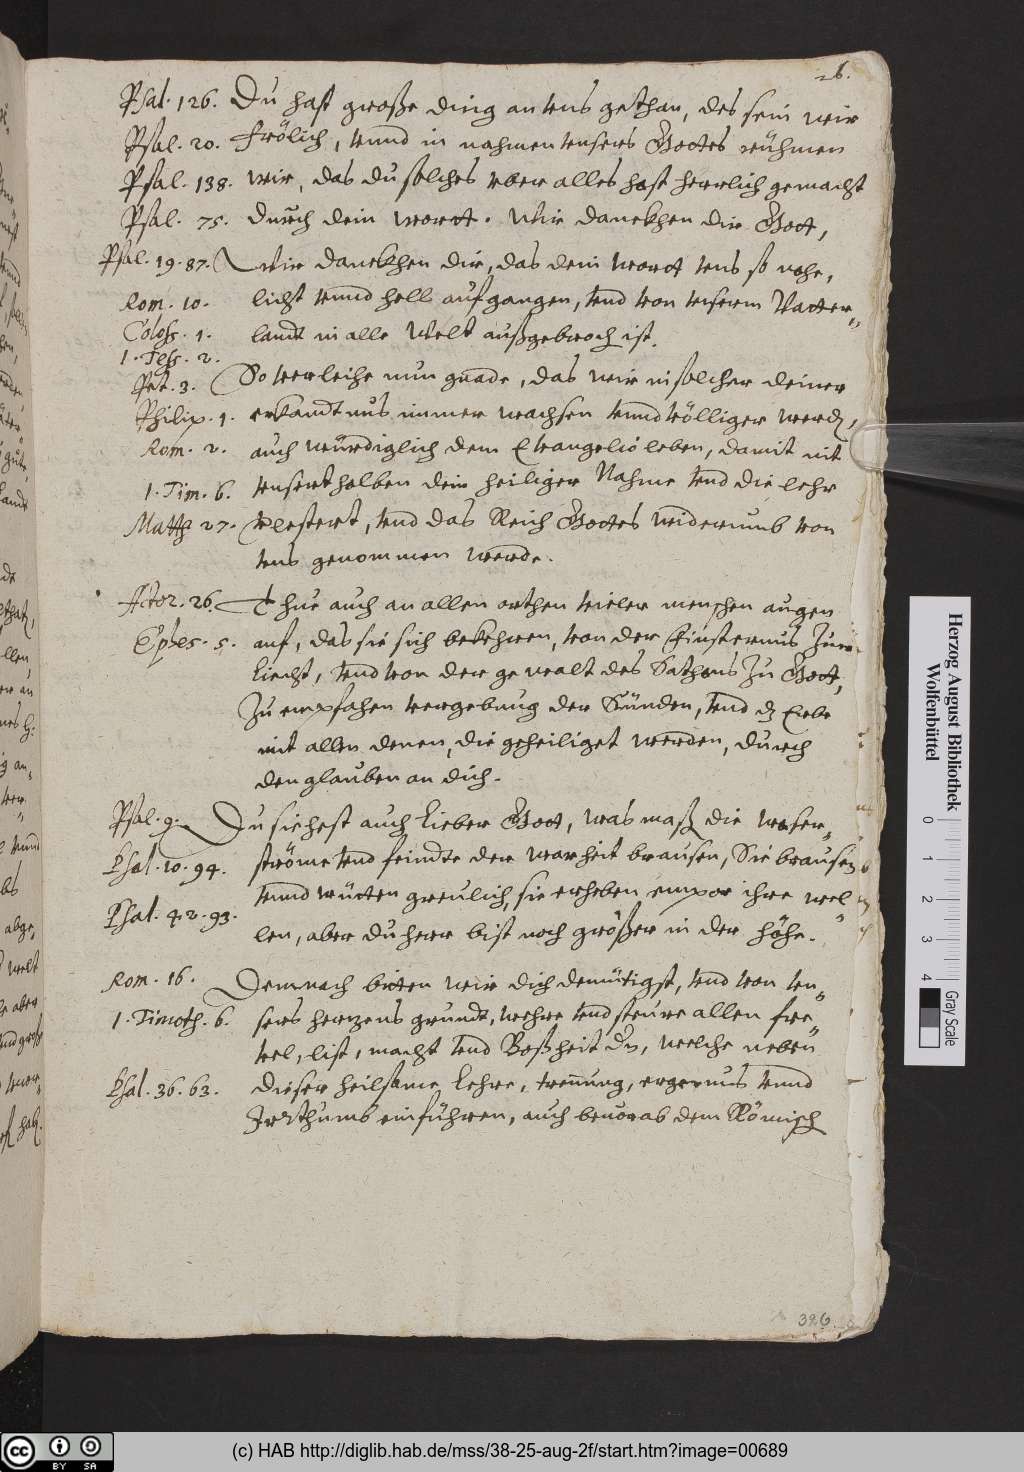 26.
Psal. 126. Du hast große ding an vns gethan, des sein wir
Psal. 20. frölich, vnnd in nahmen vnsers Gottes rühmen
Psal. 138. wir, das du solches vber alles hast herrlich gemacht
Psal. 75. durch dein wortt. Wir danckhen dir Gott,
Psal. 19. 87. Wir danckhen dir, das dein wortt vns so nahe,
Rom. 10. licht vnnd hell auffgangen, vnd von vnserm Vatter„
Coloss. 1. landt in alle Welt außgebroch ist.
1. Tess. 2.
Pet. 3. So verleihe nun gnade, das wir in solcher deiner
Philip. 1. erkandtnus immer wachsen vnnd völliger werdn,
Rom. 2. auch würdiglich dem Evangelio leben, damit nit
1. Tim. 6. vnserthalben dein heiliger Nahme vnd die lehr
Matth 27. verlestert, vnd das Reich Gottes widerumb von
vns genommen werde.
Actor. 26. Thue auch an allen orthen vieler menschen augen
Ephes. 5. auf, das sie sich bekehren, von der finsternus zum
Liecht, vnd von der gewalt des Sathans zu Gott,
zu empfahen vergebung der Sünden, vnd dz Erbe
mit allen denen, die geheiliget werden, durch
den glauben an dich.
Psal. 9. Du siehest auch Lieber Gott, was maß die wasser„
Psal. 10. 94. ströme vnd feindte der warheit brausen, Sie brausen
vnnd wütten greulich, sie erheben empor ihre wel„
Psal. 42. 93. len, aber du herr bist noch größer in der höhe.
Rom. 16. Demnach bitten wir dich demütigst, vnd von vn„
1. Timoth. 6. sers hertzens grundt, wehre vnd steure allen fre„
vel, list, macht vnd Boßheit der, welche neben
Psal. 36. 63. dieser heilsame Lehre, trennung, ergernus vnnd
Irrthumb einführen, auch beuorab dem Römisch
326
Herzog August Bibliothek
Wolfenbüttel
0 1 2 3 4
Gray Scale
cc BY SA
(c) HAB http://diglib.hab.de/mss/38-25-aug-2f/start.htm?image=00689